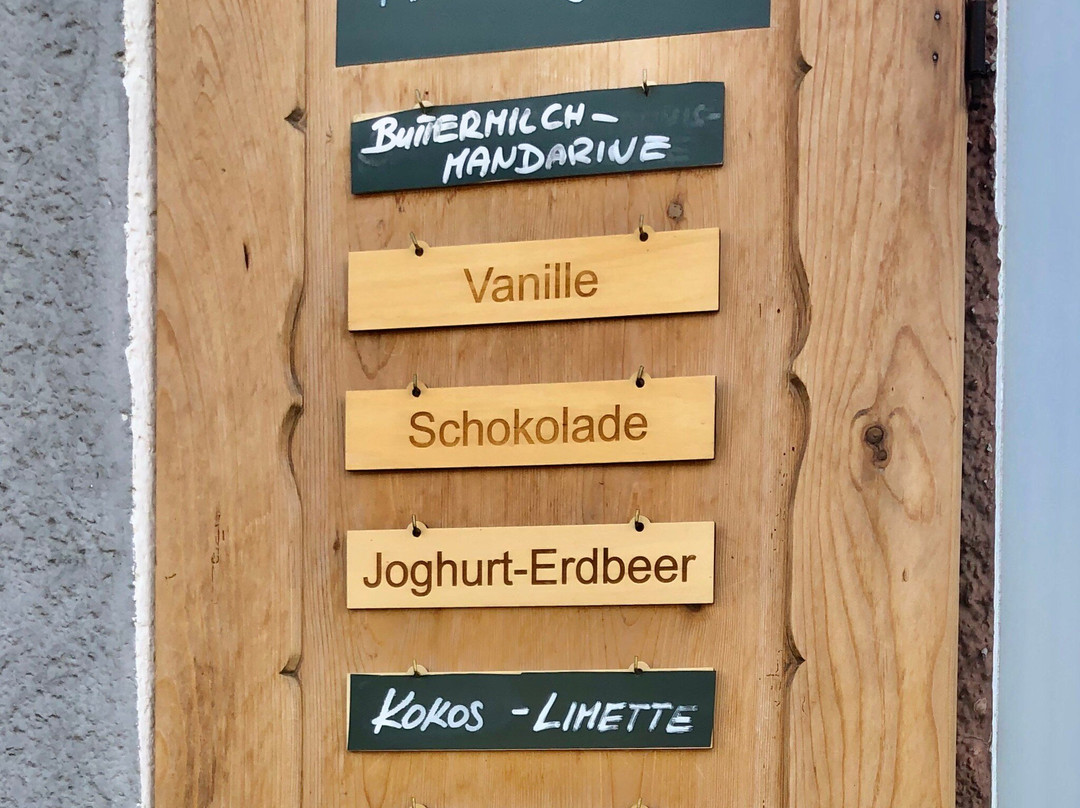 BUTTERMILCH-
MANDARINE
Vanille
Schokolade
Joghurt-Erdbeer
KOKOS - LIMETTE